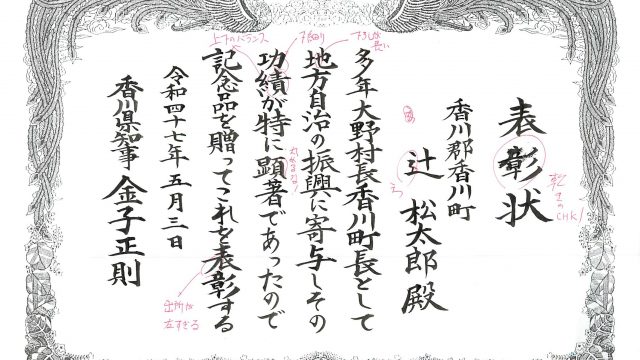 表彰状
香川郡香川町
辻 松太郎殿
多年大野村長香川町長として
地方自治の振興に寄与しその
功績が特に顕著であったので
記念品を贈ってこれを表彰する
令和四十七年五月三日
香川県知事 金子正則
上下のバランス
長い
左すぎる